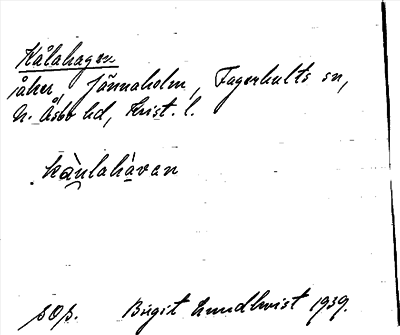 Kålahagen
åker, Jännaholm, Fagerhults sn,
N. Åsbo hd, Krist. l.
kàulahàvan
sOp. Birgit Lundkvist 1939.